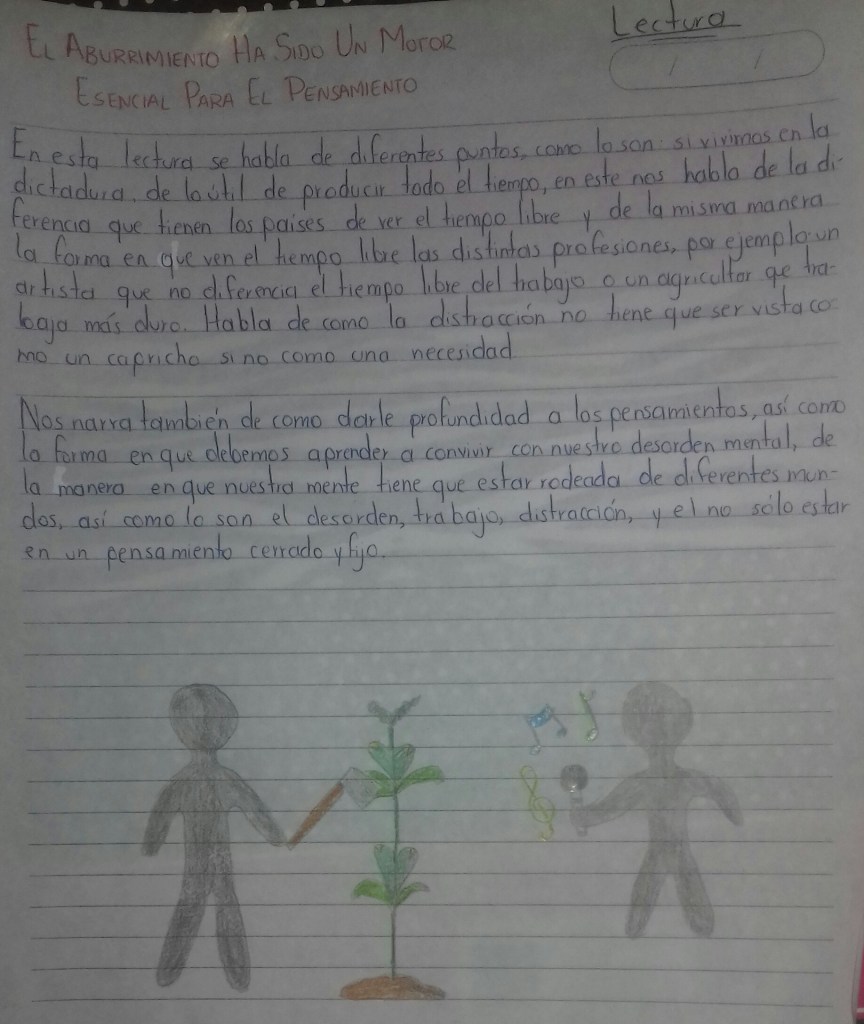 Lectura
/ /
EL ABURRIMIENTO HA SIDO UN MOTOR
ESENCIAL PARA EL PENSAMIENTO
En esta lectura se habla de diferentes puntos, como lo son: si vivimos en la
dictadura, de lo útil de producir todo el tiempo, en este nos habla de la di-
ferencia que tienen los paises de ver el tiempo libre y de la misma manera
la forma en que ven el tiempo libre las distintas profesiones, por ejemplo: un
artista que no diferencia el tiempo libre del trabajo o un agricultor qe tra-
baja más duro. Habla de como la distracción no tiene que ser vista co-
mo un capricho si no como una necesidad
Nos narra también de como darle profundidad a los pensamientos, así como
la forma en que debemos aprender a convivir con nuestro desorden mental, de
la manera en que nuestra mente tiene que estar rodeada de diferentes mun-
dos, así como lo son el desorden, trabajo, distracción, y el no sólo estar
en un pensamiento cerrado y fijo.